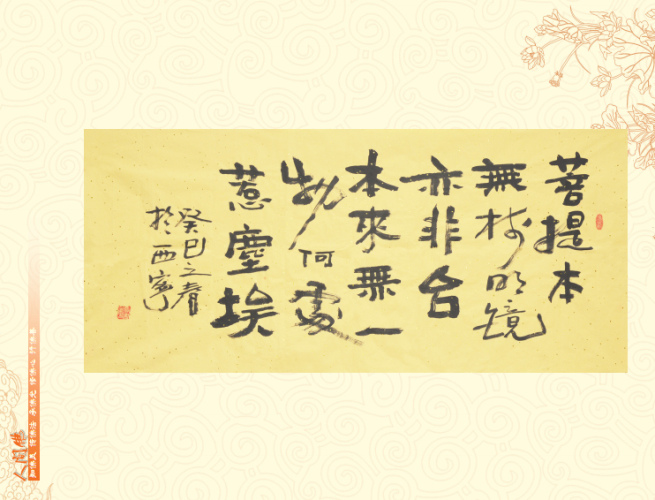 菩提本
無樹明鏡
亦非台
本來無一
物何處
惹塵埃
癸巳之春
於西寧